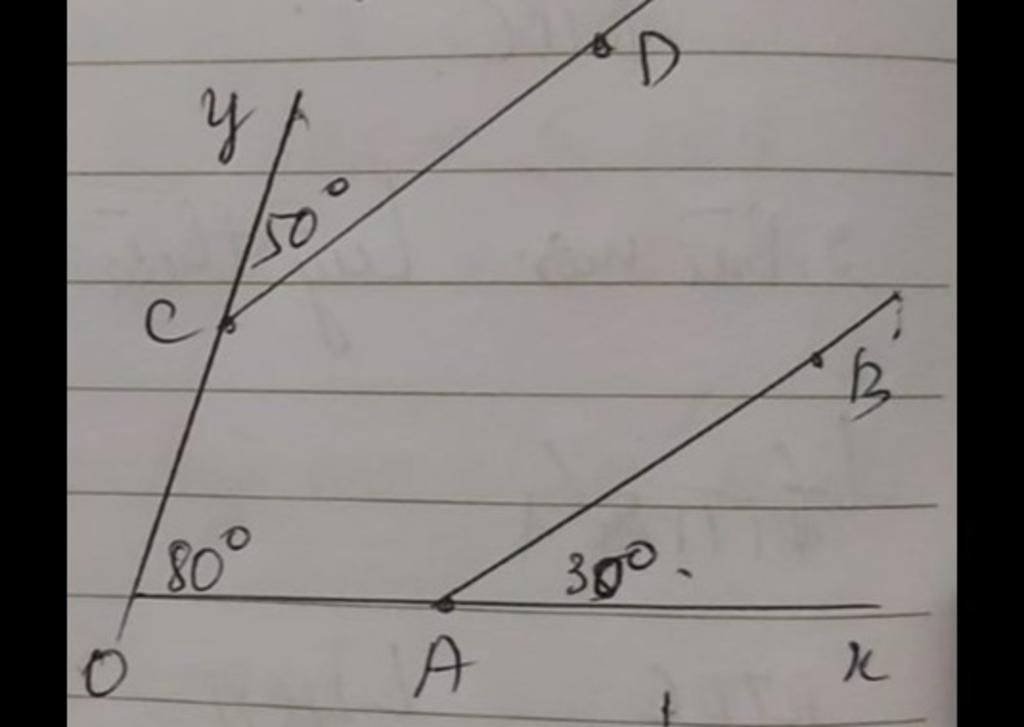 D
y
50°
C
B
80°
30°.
O
A
x